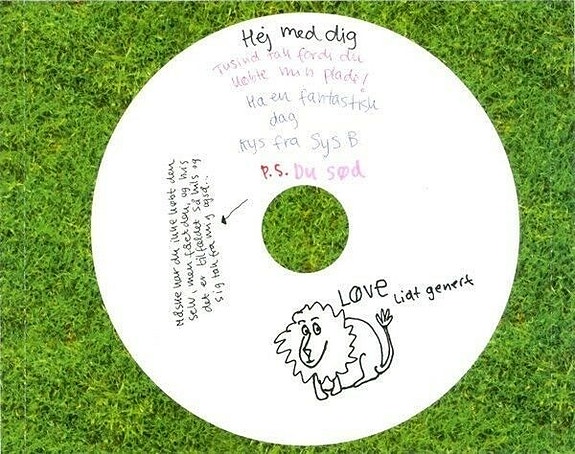 Hej med dig
Tusind tak fordi du
købte min plade!
Ha en fantastisk
dag
Kys fra Sys B
P.S. Du sød
Måske har du ikke købt den
selv, men fået den, og hvis
det er tilfældet så hils og
sig tak fra mig også..
LØVE
Lidt genert